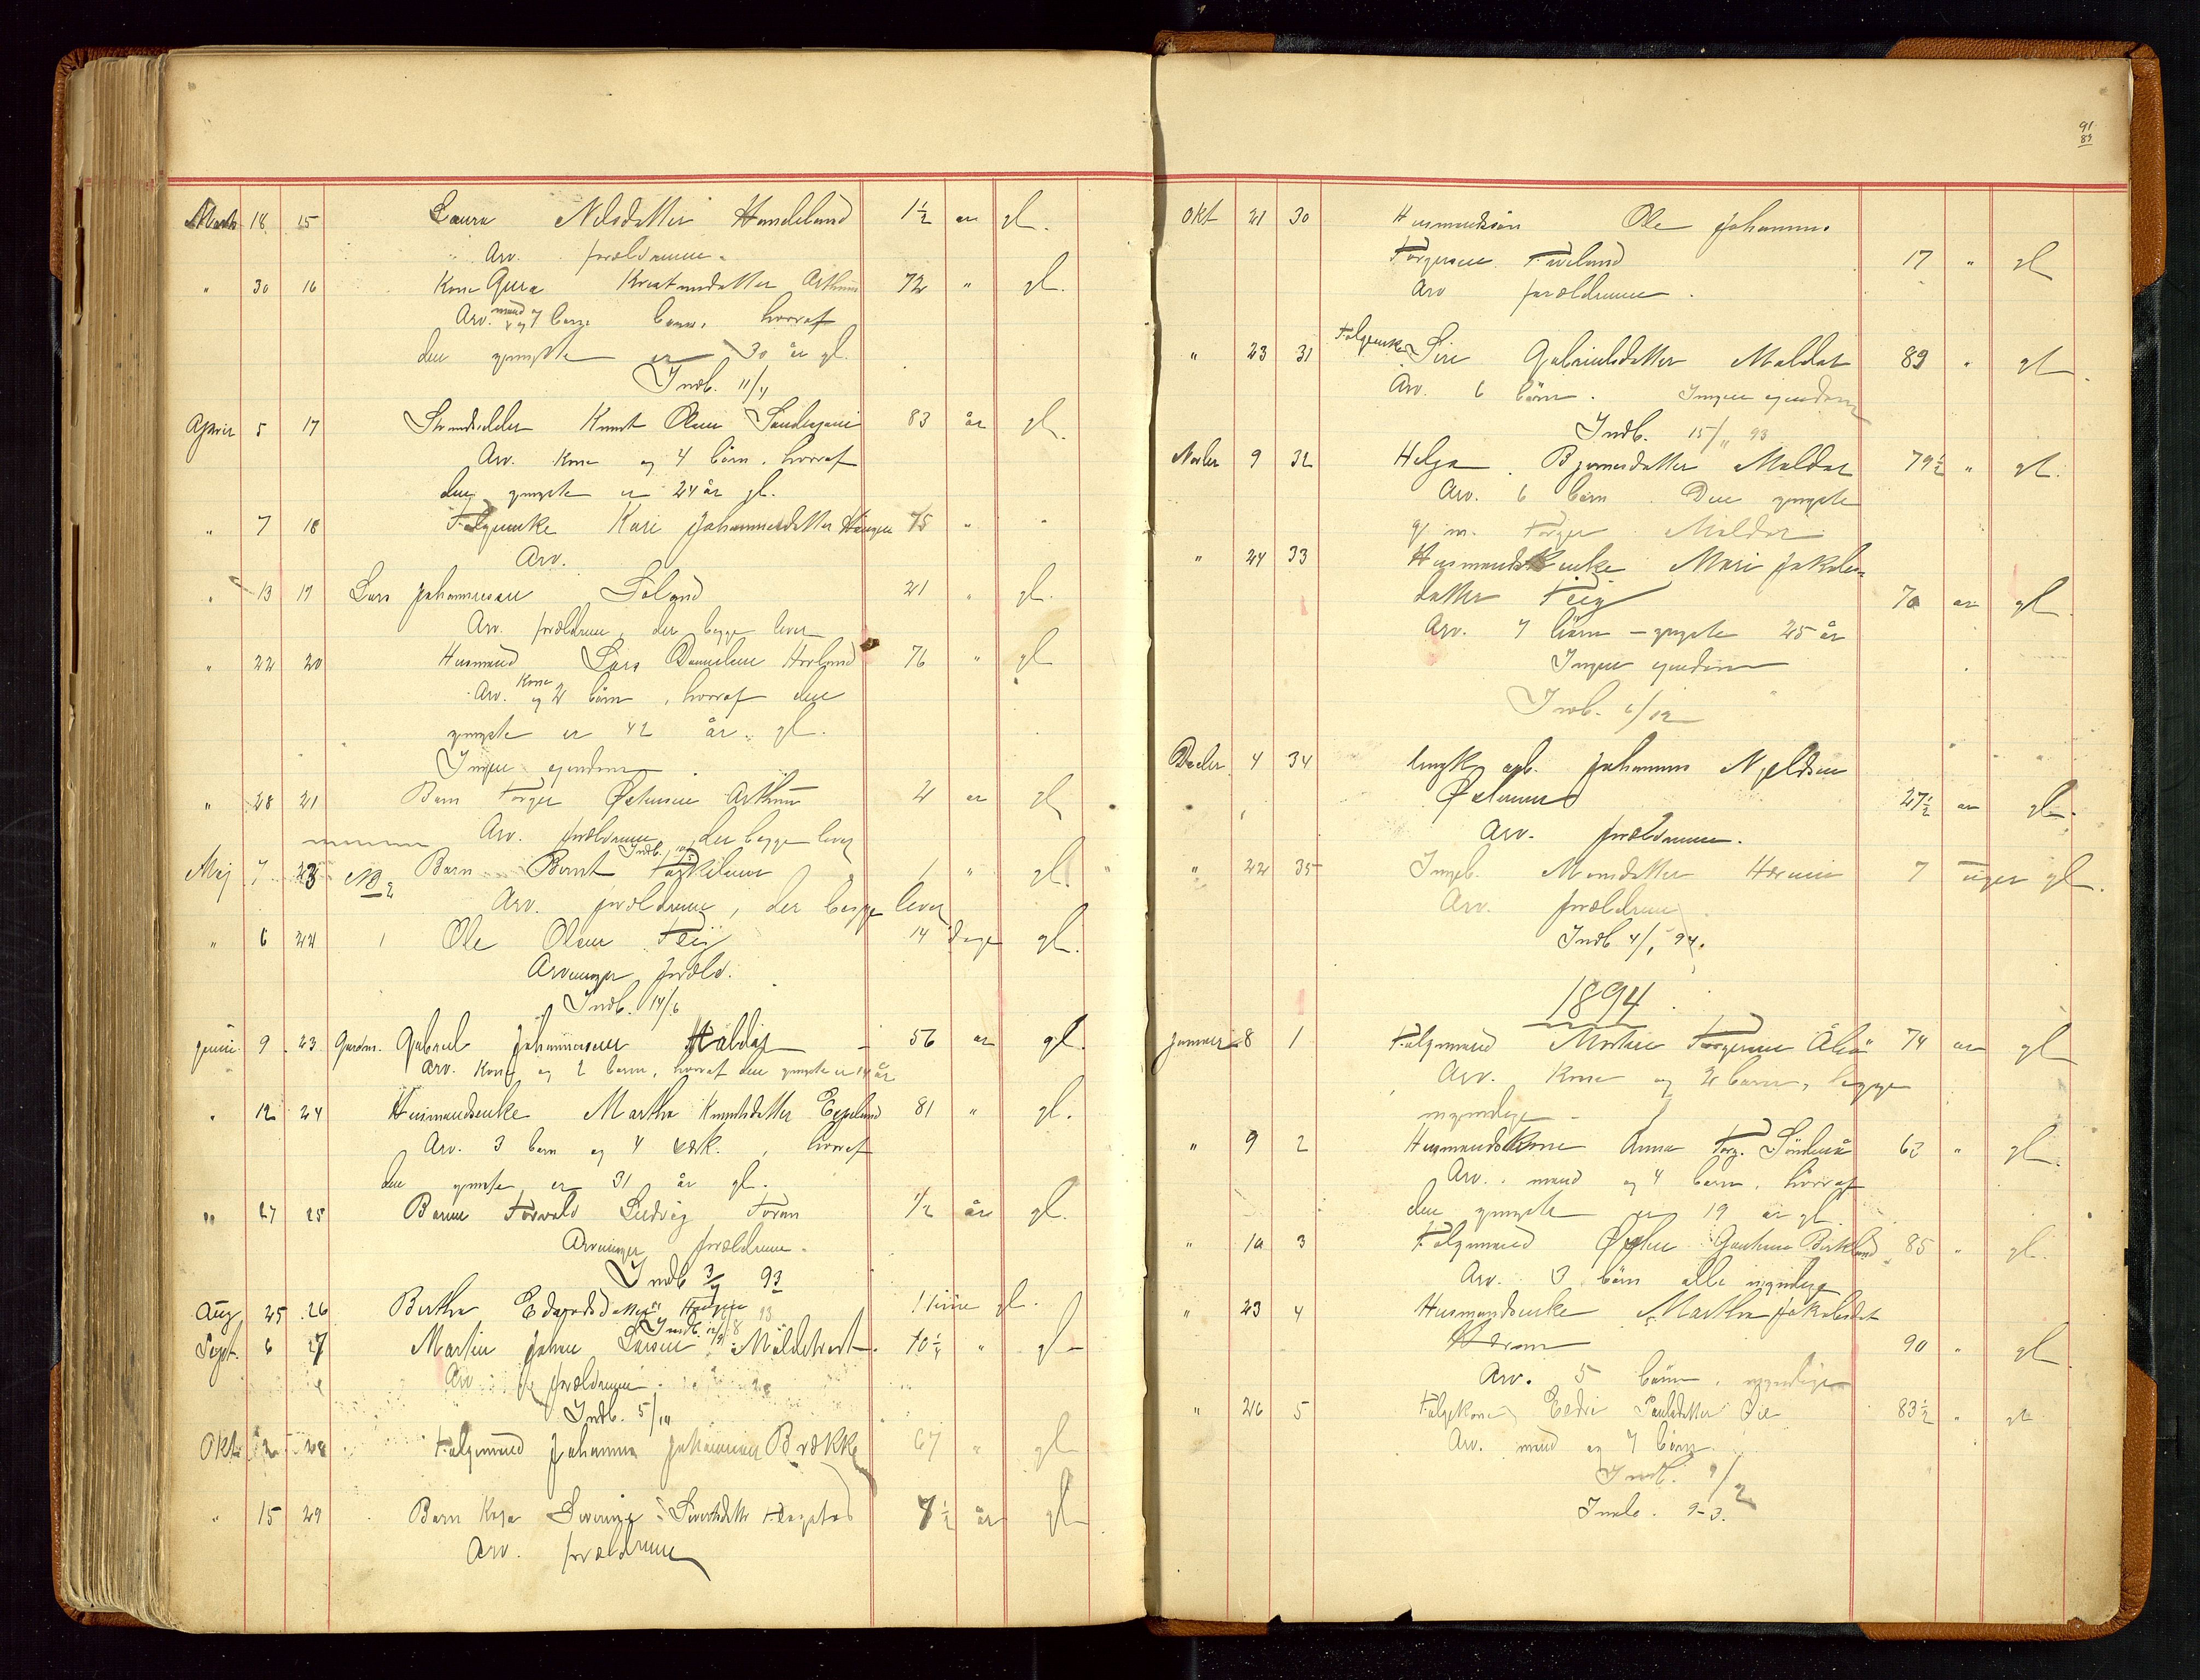 Marts 18 15 Laura Nelsdatter Handeland 1½ år gl.
Arv. forældrene.
" 30 16 Kone Gura Knutsdatter 72 " gl.
Arv. mand og 7 børn, hvoraf
den yngste er 30 år gl.
Indb. 11/4
April 5 17 Knut Olsen 83 år gl.
Arv. Kone og 4 børn, hvoraf
den yngste er 24 år gl.
" 7 18 Følgeenke Kari Johannesdatter Haugen 75 " "
Arv.
" 13 19 Lars Johannesen 21 " gl.
Arv. forældrene, der begge lever
" 22 20 Husmand Lars Danielsen 76 " gl
Arv. Kone og 2 børn, hvoraf den
yngste er 42 år gl.
Ingen eiendom
" 28 21 Barn Torger Østensen 2 år gl
Arv. forældrene, der begge lever
Indb.
Maj 7 23 NB Barn Bernt Torkilsen 1 " gl.
Arv. forældrene, der begge lever
" 6 22 Ole Olsen Teig 14 dage gl.
Arvinger foræld.
Indb. 14/6
Juni 9 23 Gardm. Gabriel Johannesen Maldal 56 år gl.
Arv. Kone og 2 børn, hvoraf den yngste er 14 år
" 12 24 Husmandsenke Martha Knutsdatter Espeland 81 " gl.
Arv. 3 børn og 4 hvoraf
den yngste er 31 år gl.
" 27 25 Barnet Torvald Ludvig 1/2 år gl.
Arvinger forældrene.
Indb 3/7 93
Aug 25 26 Bertha 1 time gl.
Indb. 93
Sept. 6 27 Martin Johan Larsen 10½ " gl
Arv. forældrene.
Indb. 5/10
Okt 28 Følgemand Johannes Johannesen Brække 67 " gl
" 15 29 Barn Kaja Severine Sivertsdatter 7½ år gl
Arv. forældrene
91
89
Okt 21 30 Husmandssøn Ole Johannes
Torgersen Tveland 17 " gl
Arv forældrene.
" 23 31 Følgeenke Siri Gabrielsdatter Maldal 89 " gl.
Arv. 6 børn. Ingen eiendom
Indb. 15/11 93
Novbr 9 32 Helga Bjørnsdatter Maldal 79½ " gl.
Arv. 6 børn. Den yngste
g. m. Torger Maldal
" 24 33 Husmandsenke Mari Jakobs-
datter Teig 70 år gl.
Arv. 7 børn – yngste 25 år
Ingen eiendom
Indb. 6/12
Decbr. 4 34 Johannes Njeldsen
27½ år gl.
Arv. forældrene.
" 22 35 Ingeb. Monsdatter 7 uger gl.
Arv. forældrene
Indb 4/1 94.
1894
Januar 8 1 Følgemand Morten Torgersen 74 år gl
Arv. Kone og 2 børn, begge
myndige
" 9 2 Husmandskone Anna Torg. Søndenå 63 " gl.
Arv. mand og 4 børn, hvoraf
den yngste er 19 år gl
" 10 3 Følgemand Gautun Birkeland 85 " gl.
Arv. 3 børn alle myndige
" 23 4 Husmandsenke Martha Jakobsdat
90 " gl
Arv. 5 børn, myndige
" 26 5 Følgekone Eedri Paulsdatter Øie 83½ " gl
Arv. mand og 7 børn.
Indb. 9/2
Indb. 9-3.